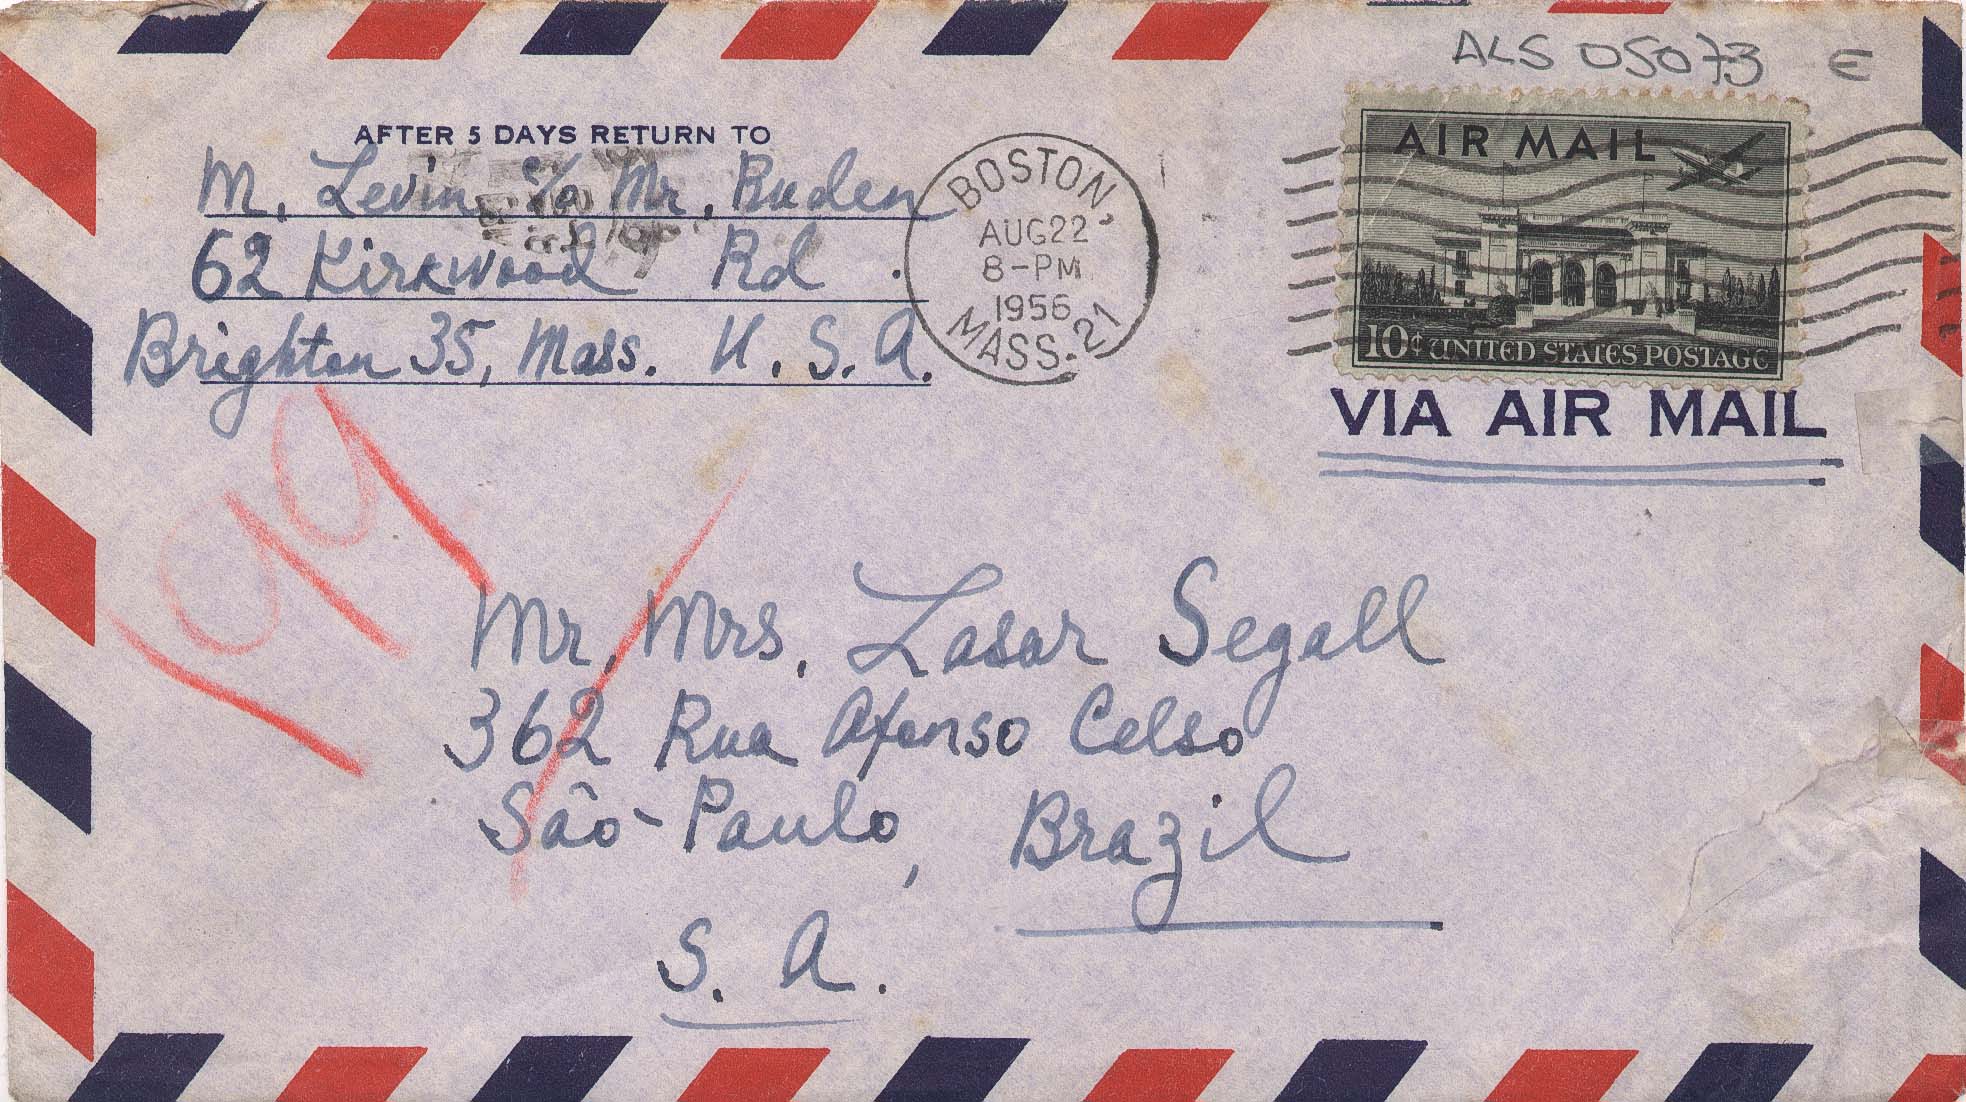 ALS 05073 E
AFTER 5 DAYS RETURN TO
M. Levin c/o Mr. Ruden
62 Kirkwood Rd.
Brighton 35, Mass. U.S.A.
BOSTON,
AUG 22
8-PM
1956
MASS.21
AIR MAIL
10¢ UNITED STATES POSTAGE
VIA AIR MAIL
199
Mr. Mrs. Lasar Segall
362 Rua Afonso Celso
Sâo-Paulo, Brazil
S. A.